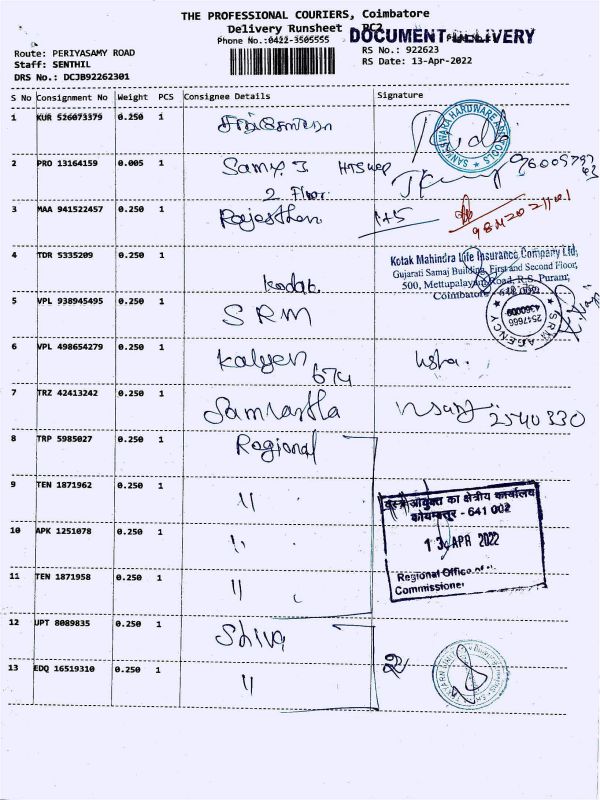 THE PROFESSIONAL COURIERS, Coimbatore
Delivery Runsheet
DOCUMENT DELIVERY
Phone No.:0422-3505555
Route: PERIYASAMY ROAD
RS No.: 922623
Staff: SENTHIL
RS Date: 13-Apr-2022
DRS No.: DCJB92262301
S No Consignment No Weight PCS Consignee Details Signature
1 KUR 526073379 0.250 1
SANKESWARA HARDWARE AND TOOLS
2 PRO 13164159 0.005 1 Samy J
2 Floor
3 MAA 941522457 0.250 1 Rajesthan
4 TDR 5335209 0.250 1
Kotak Mahindra Life Insurance Company Ltd,
Gujarati Samaj Building, First and Second Floor,
500, Mettupalayam Road, R.S. Puram,
Coimbatore
Kodak
5 VPL 938945495 0.250 1 SRM
SRM AGENCY
2547666
4360009
6 VPL 498654279 0.250 1 Kalyen Usha.
674
7 TRZ 42413242 0.250 1 Samrastha 2540330
8 TRP 5985027 0.250 1 Regional
9 TEN 1871962 0.250 1 "
का क्षेत्रीय कार्यालय
कोयम्बत्तूर - 641 002
10 APK 1251078 0.250 1 "
APR 2022
11 TEN 1871958 0.250 1 "
Regional Office of
Commissioner
12 UPT 8089835 0.250 1 Shiva
13 EDQ 16519310 0.250 1 "